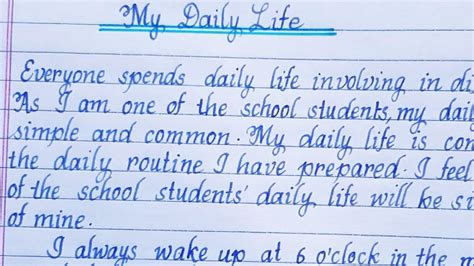 My Daily Life
Everyone spends daily life involving in di
As I am one of the school students, my dail
simple and common. My daily life is con
the daily routine I have prepared. I feel
of the school students' daily life will be si
of mine.
I always wake up at 6 o'clock in the m